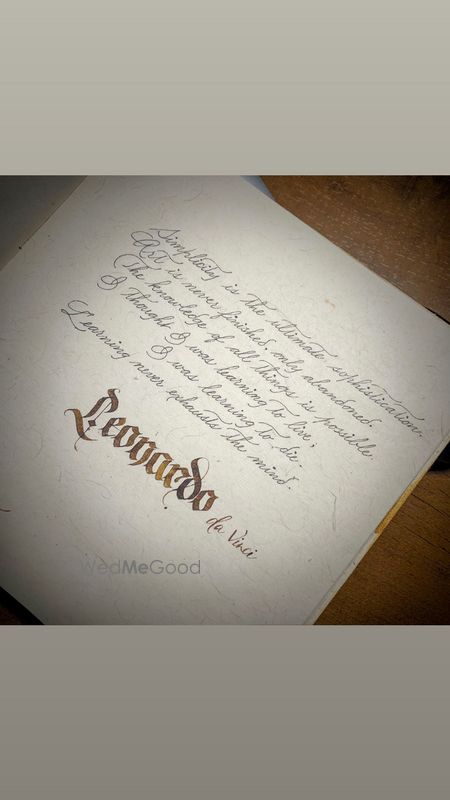 Simplicity is the ultimate sophistication.
Art is never finished, only abandoned.
The knowledge of all things is possible.
I thought I was learning to live;
I was learning to die.
Learning never exhausts the mind.
Leonardo
da Vinci
WedMeGood